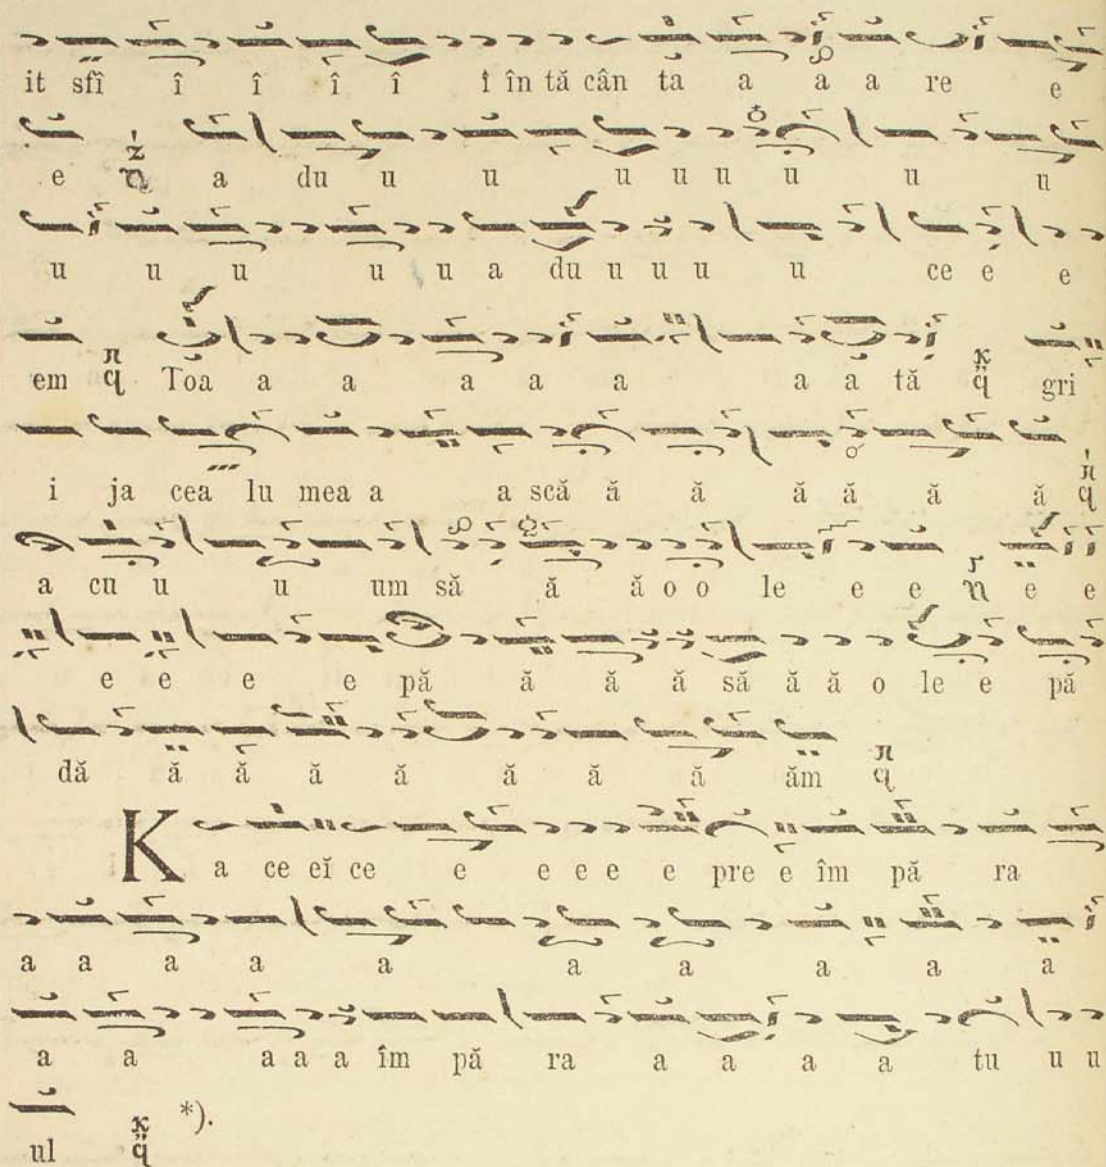 it sfî î î î î î în tă cân tă a a a re e
e a du u u u u u u u u
u u u u u a du u u u u ce e e
em Toa a a a a a a a tă gri
i ja cea lu mea a a scă ă ă ă ă ă ă
a cu u u um să ă ă o o le e e e e
e e e e pă ă ă ă să ă ă o le e pă
dă ă ă ă ă ă ă ă ăm
K a ce eĭ ce e e e e e pre e îm pă ra
a a a a a a a a a a
a a a a a îm pă ra a a a a tu u u
ul *).